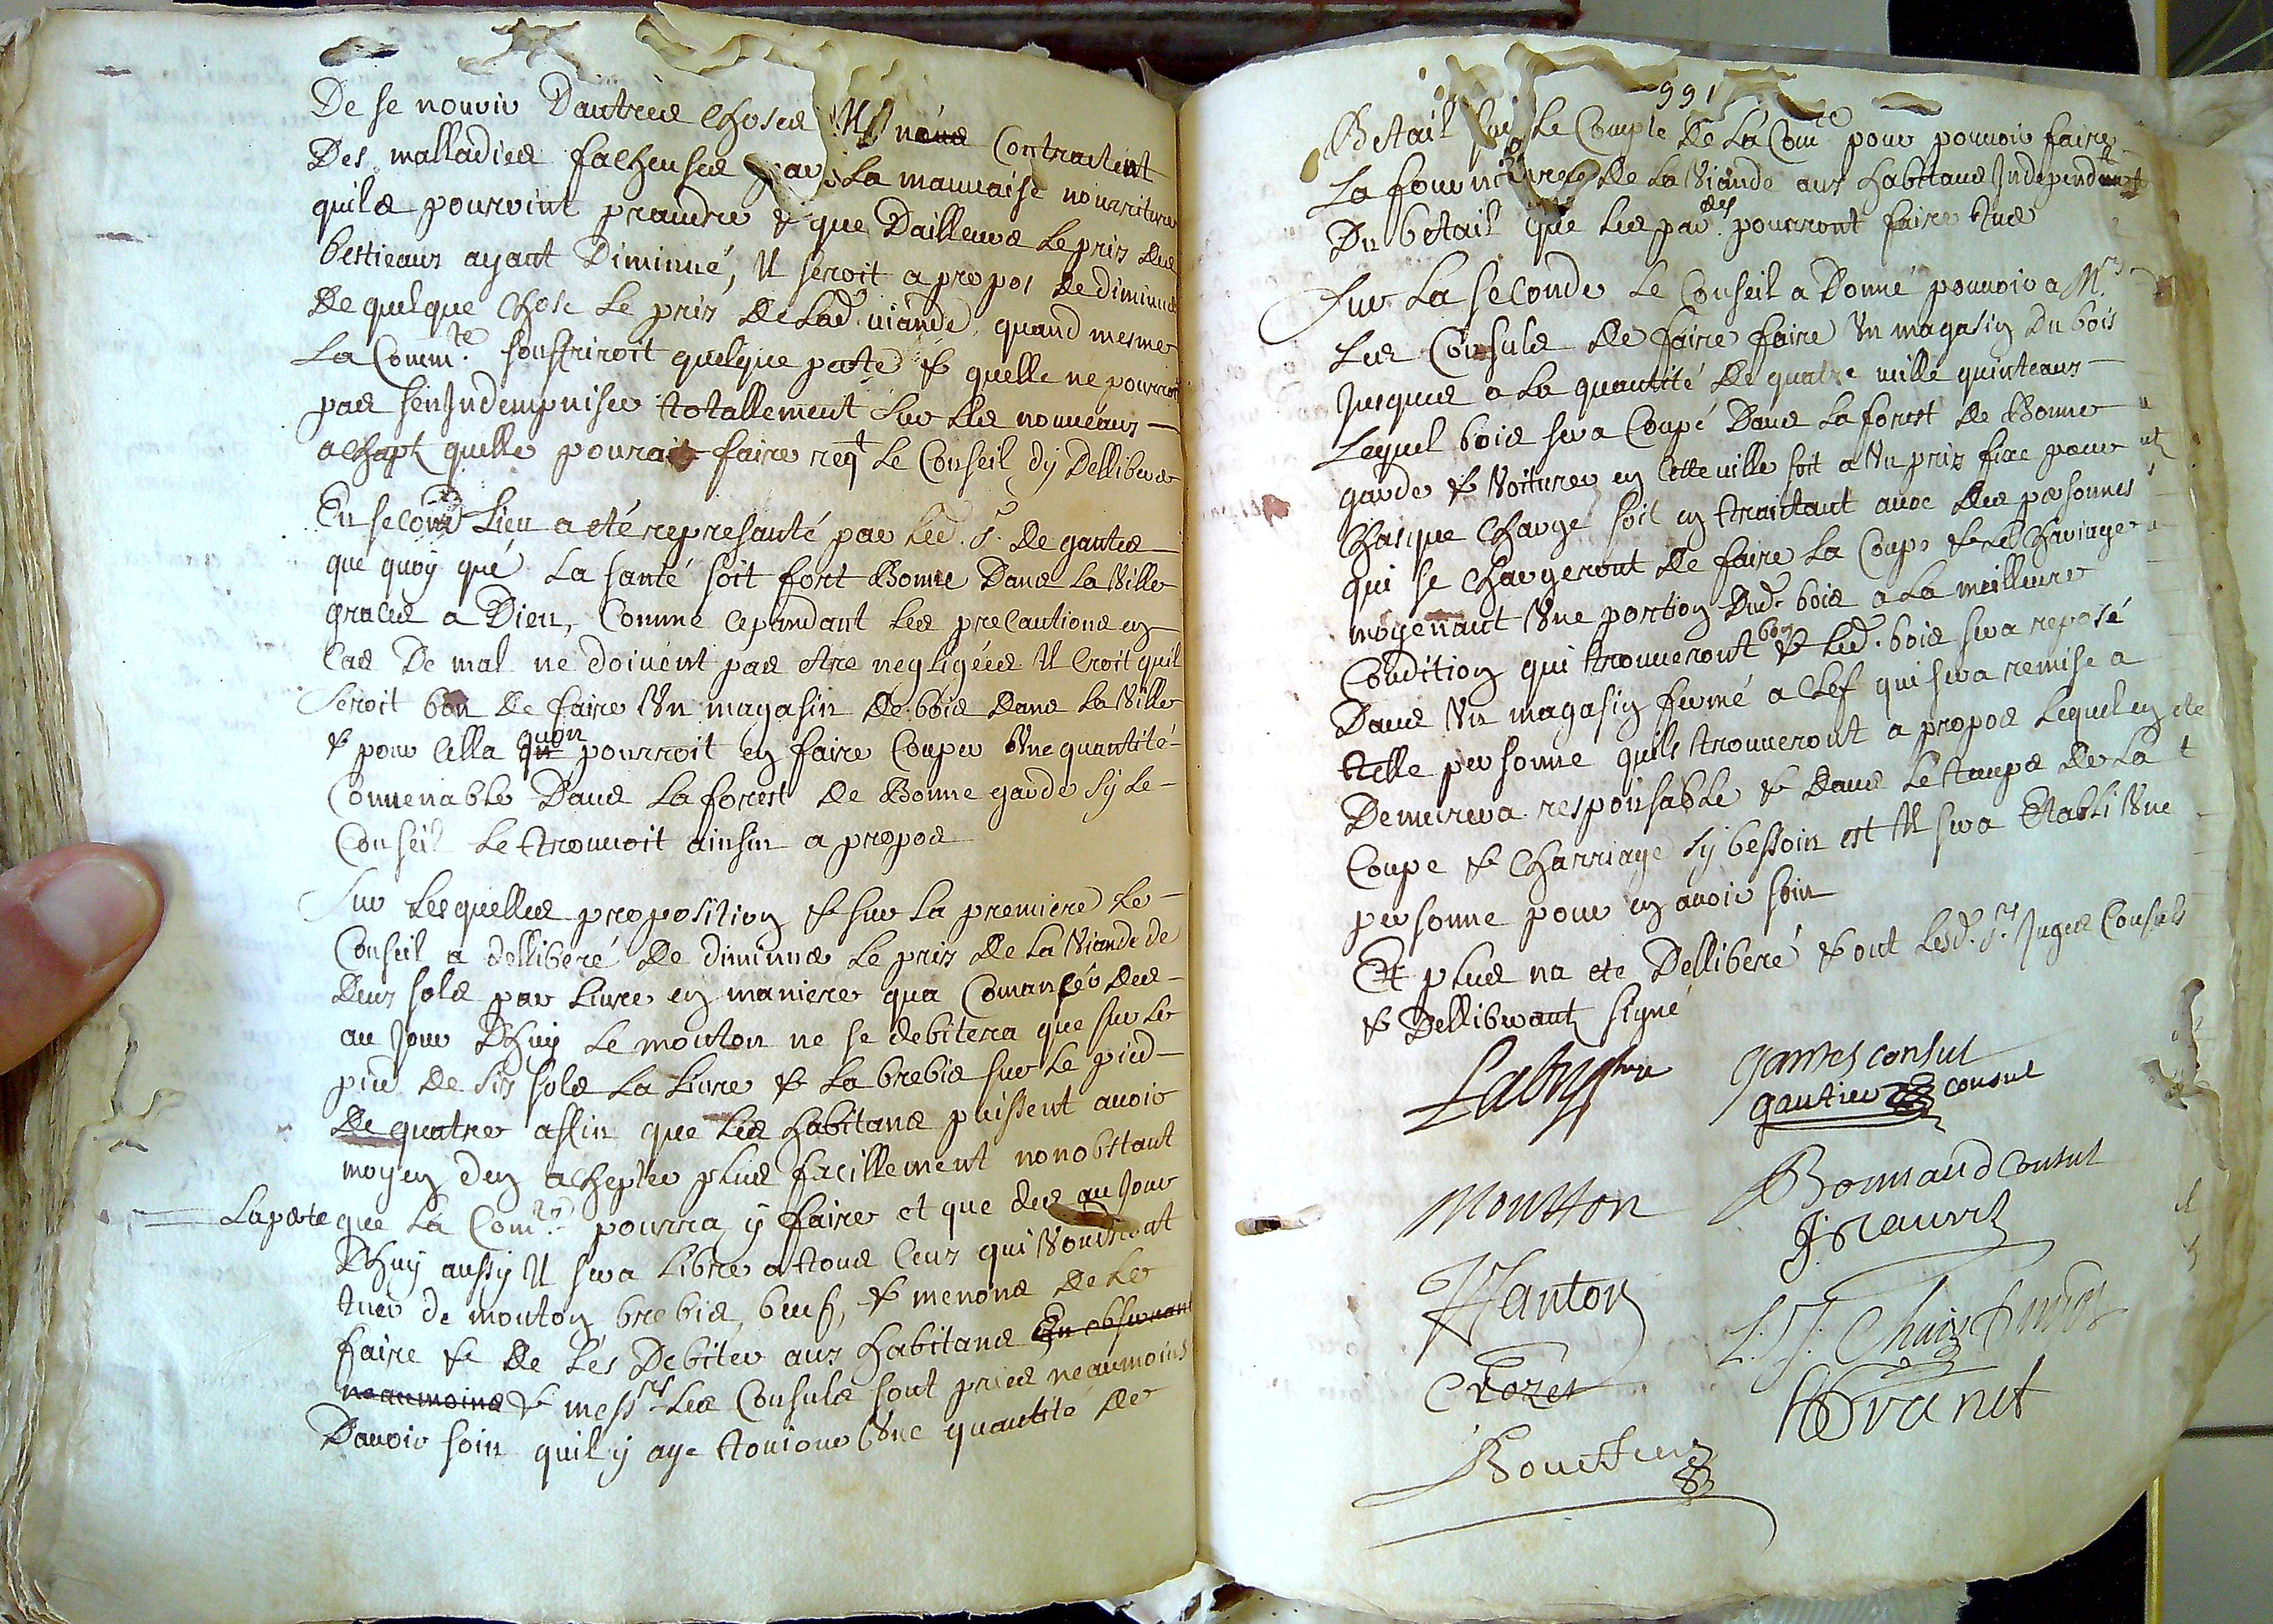 De se nourir Dautres choses Il nous Contractent
Des malladies facheuses par La mauvaise nourriture
quils pouroint prandre & que Dailleurs Le pris des
bestieaux ayant Diminué, Il seroit a propos de diminuer
De quelque chose Le pris de Lad. viande, quand mesme
La Comm.te souffriroit quelque perte & quelle ne pourroit
pas senIndempniser totallement sur Les nouveaux
achapt quelle pourait faire reqt Le Conseil dy Delliberer
En second Lieu a eté represanté par Led. Sr. De gantes
que quoy que La santé soit fort Bonne Dans La Ville
graces a Dieu, Comme cepandant Les precautions en
Cas De mal ne doivent pas etre negligées Il Croit quil
seroit bon De faire Un magasin De bois dans La Ville
& pour Cella quon pourroit en faire Couper Une quantité
Convenable Dans La forest de Bonne garde sy Le
Conseil Le trouvoit ainsin a propos
Sur Lesquelles proposition & sur La premiere Le
Conseil a delliberé De diminuer Le pris De La Viande de
Deux sols par Livre en maniere qua Comanser des
au Jour Dhuy Le mouton ne se debitera que sur Le
pied De six sols La Livre & La brebis sur Le pied
De quatre affin que Les habitans puissent avoir
moyen den achepter plus facillement nonobstant
La perte que La Com.te pourra y faire et que des au Jour
Dhuy aussy Il sera Libre a tous Ceux qui Voudront
tuer de mouton brebis, beuf, & menons De Le
faire & De Les Debiter aux habitans En observant
neaumoins & mess.rs Les Consuls sont priés neaumoins
Davoir soin quil y aye toujour Une quantité de
991
Betail sur Le Compte De La Com.te pour pouvoir faire
La fourniture De La Viande aux habitans Independt
Du betail que Les par.ers pourront faire tuer
Sur La seconde Le Conseil a Donné pouvoir a Mrs
Les Consuls De faire faire Un magasin Du bois
Jusques a La quantité De quatre mille quinteaux
Lequel bois sera Coupé Dans La forest De Bonne
garde & Voiturer en Cette ville soit a Un pris fixe pour
Chasque charge soit en traitant avec Des personnes
qui se chargeront De faire La Coupe & Le Chariage
moyenant Une portion Dud. bois a La meilleure
Condition qui trouveront bon & Led. bois sera reposé
Dans Un magasin fermé a Clef qui sera remise a
telle personne quils trouveront a propos Lequel en
Demeurera responsable & Dans Le temps De La
Coupe & Charriage sy bessoin est Il sera Etabli Une
personne pour en avoir soin
Et plus na eté Delliberé & ont Lesd. Srs. Juges Consuls
& Delliberants signé
gantes consul
gautier consul
Moutton
Bonnaud Consul
Hanton
Crozet
Granet